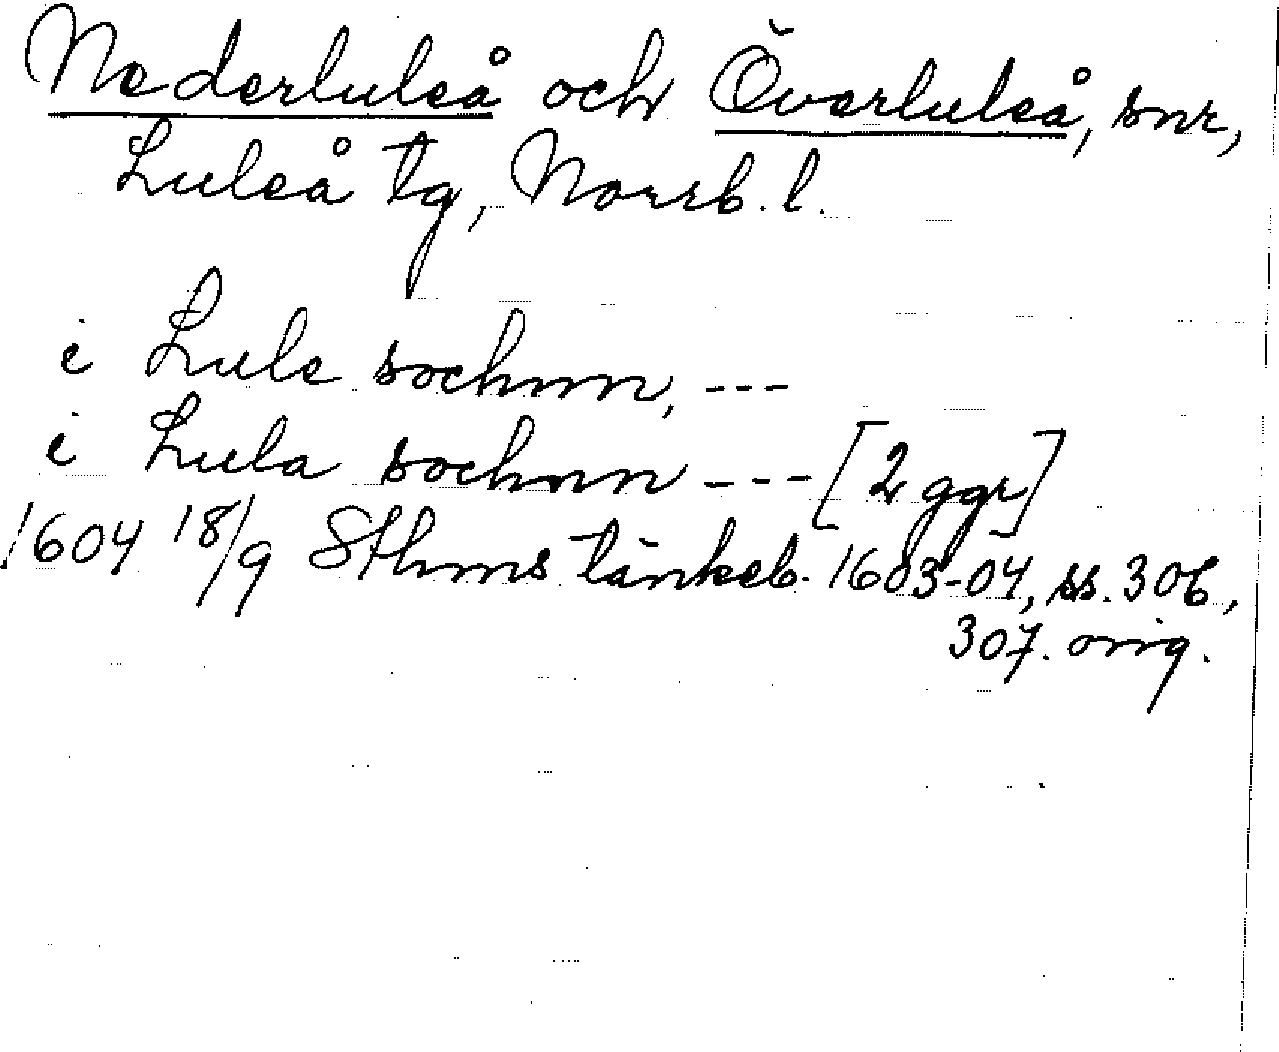 Nederluleå och Överluleå, snr,
Luleå tg, Norrb. l.
i Lule sochnn, ---
i Lula sochnn --- [2 ggr]
1604 18/9 Sthms tänkeb. 1603-04, ss. 306,
307. orig.